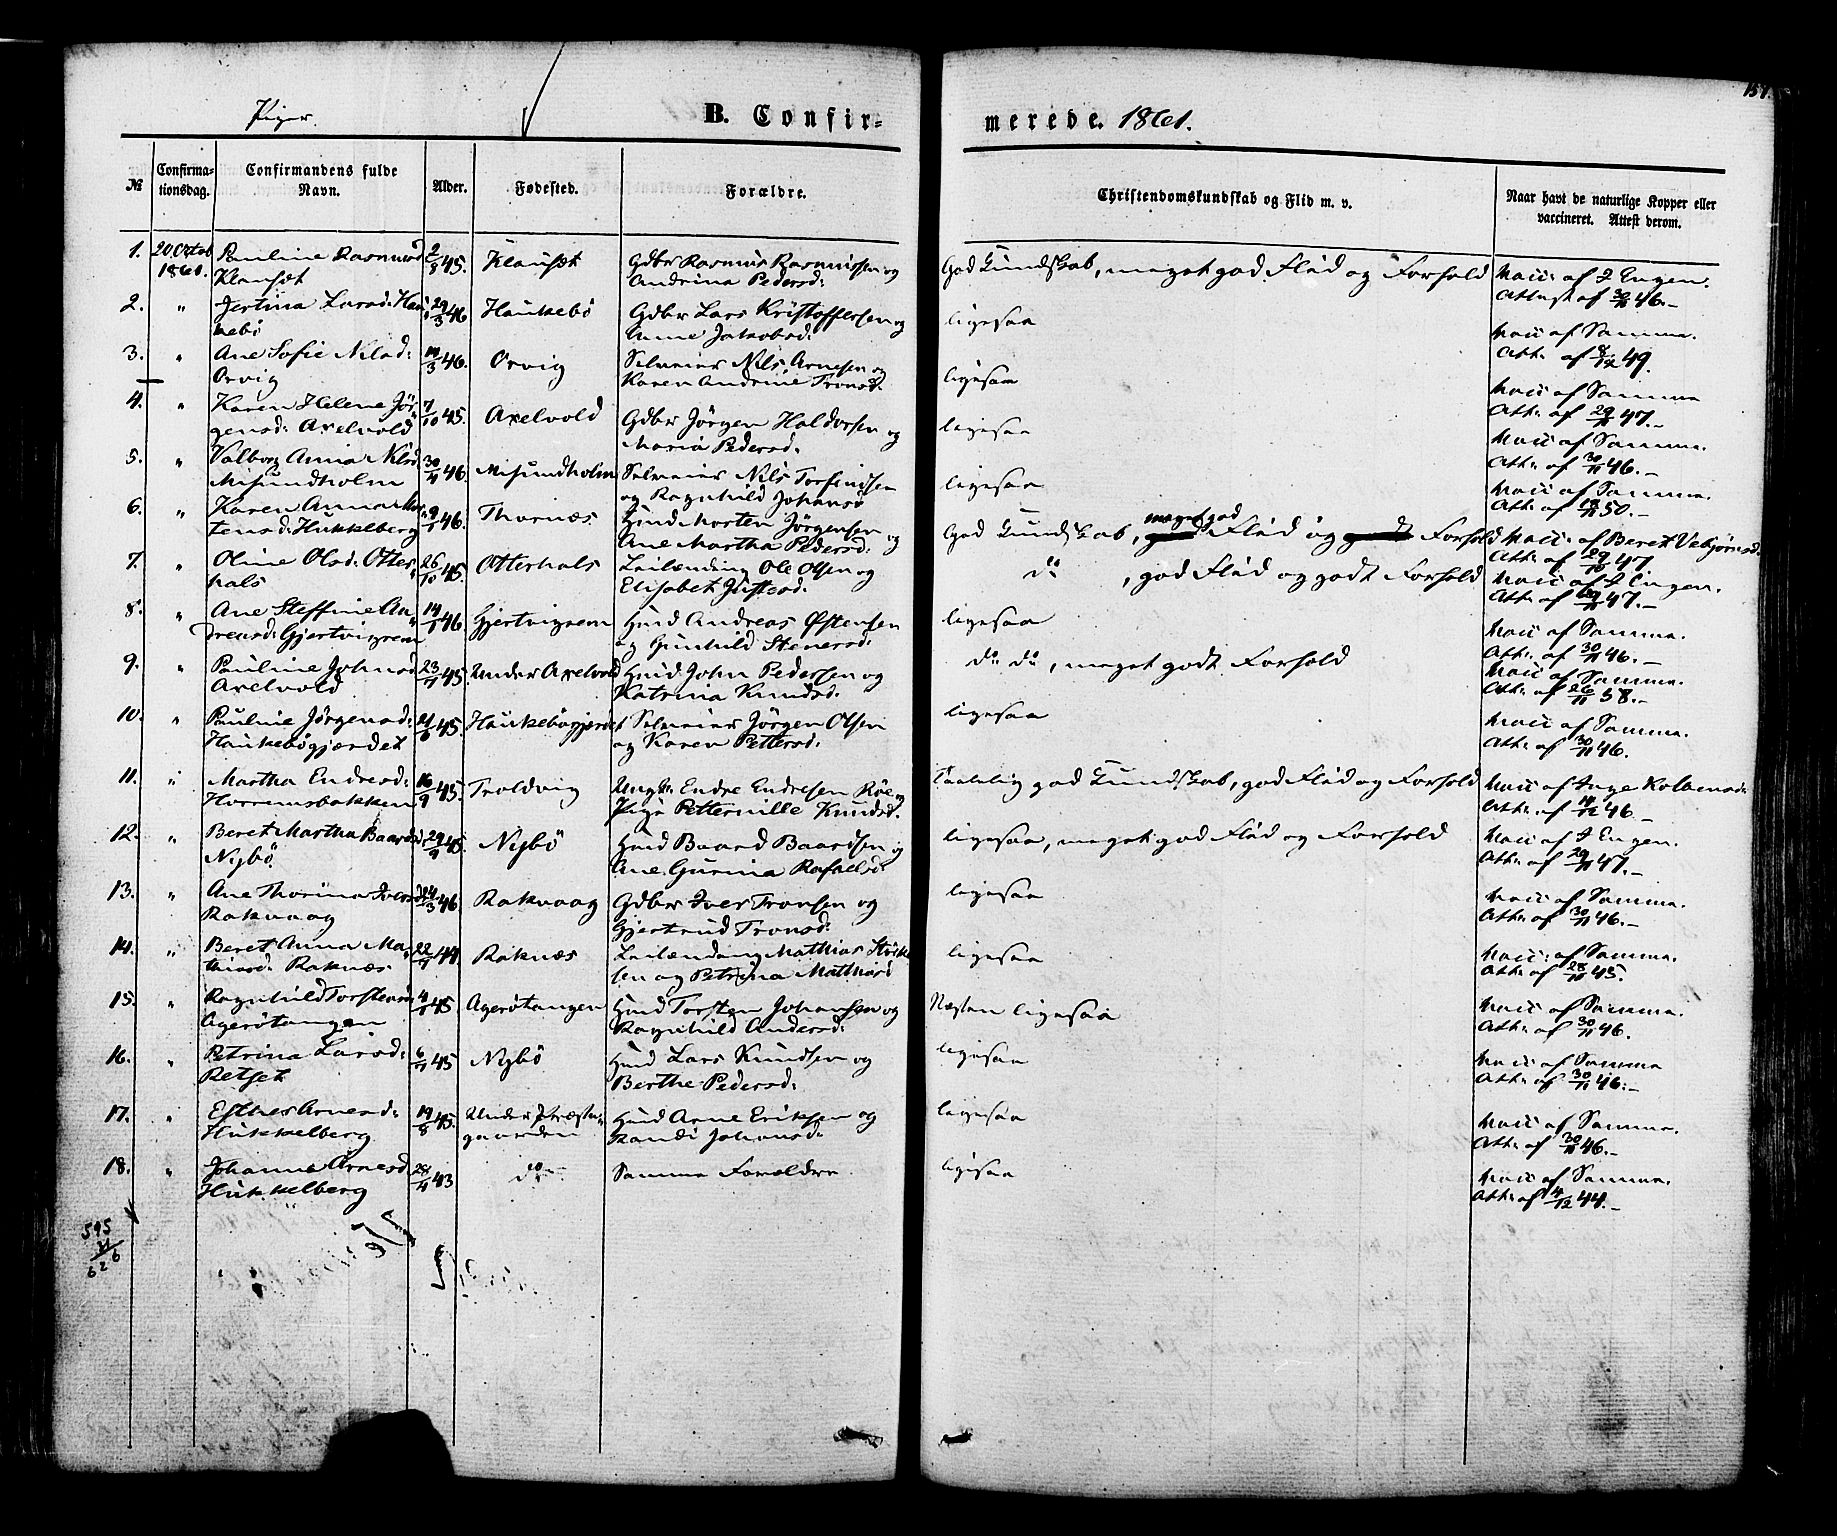 157.
Piger.
B. Confir-
merede. 1861.
№
Confirma-
tionsdag.
Confirmandens fulde
Navn.
Alder.
Fødested.
Forældre.
Christendomskundskab og Flid m. v.
Naar havt de naturlige Kopper eller
vaccineret. Attest derom.
1. 20 Octob 1861. Pauline Rasmusd 2/8 45. Klausæt Gdbr Rasmus Rasmussen og God Kundskab, meget god Flid og Forhold Vacc: af J Engen.
Klausæt Andrina Pedersd: Attest af 30/11 46.-
2. " Jertina Larsd: Hau 29/3 46 Haukebø Gdbr Lars Kristoffersen og ligesaa Vacc af Samme.
kebø Anne Jakobsd: Att: af 8/12 49.
3. " Ane Sofie Nilsd: 10/3 46. Orvig Selveier Nils Arnesen og ligesaa Vacc af Samme
Orvig Karen Andrine Tronsd. Att: af 29/11 47.-
4. " Karen Helene Jør 7/10 45. Axelvold Gdbr Jørgen Haldorsen og ligesaa Vacc af Samme.
gensd: Axelvold Maria Pedersd: Att: af 30/11 46.-
5. " Valborg Anna Nilsd 30/4 46. Misundholm Selveier Nils Torfindsen ligesaa Vacc af Samme.
Misundholm og Ragnhild Johansd Att: af 50.-
6. " Karen Anna Mor 9/1 46. Thornæs Hmd Morten Jørgensen og God Kundskab, meget god Flid og Forhold Vacc: af Beret Vebjørnsd.
tensd: Hukkelberg Ane Martha Pedersd: Att: af 29/10 47
7. " Oline Olsd: Otter 26/10 45. Otterhals Leilænding Ole Olsen og do , god Flid og godt Forhold Vacc af J Engen.
hals Elisabet Justesd: Att: af 47.-
8. " Ane Steffine An 14/1 46. Gjertvigrem Hmd Andreas Østensen ligesaa Vacc af Samme.
dreasd: Gjertvigrem og Gunhild Stenersd: Att: af 30/11 46.-
9. " Pauline Johnsd 23/7 45. Under Axelvold Hmd John Pedersen og do do, meget godt Forhold Vacc af Samme.
Axelvold Katrina Knudsd: Att: af 26/11 58.-
10. " Pauline Jørgensd: 21/6 45 Haukebøgjerdet Selveier Jørgen Olsen ligesaa Vacc af Samme.
Haukebøgjerdet og Karen Pettersd: Att: af 30/11 46.
11. " Martha Endresd: 16/9 45. Troldvig Ungk: Endre Endresen Røe og Taalelig god Kundskab, god Flid og Forhold Vacc af Inge Kolbensd:
Horremsbakken Pige Petternille Knudsd. Att: af 14/12 46.-
12. " Beret Martha Baardsd 29/9 45. Nybø Hmd Baard Baardsen og ligesaa, meget god Flid og Forhold Vacc af J Engen.
Nybø Ane Gurina Rafaelsd: Att: af 29/11 47.-
13. " Ane Thorina Iversd 24/3 46. Rakvaag Gdbr Iver Tronsen og ligesaa Vacc af Samme.
Rakvaag Gjertrud Tronsd: Att: af 30/11 46.-
14. " Beret Anna Ma 22/7 44. Raknæs Leilænding Mathias ligesaa Vacc: af Samme.
thiasd: Raknæs sen og Petrina Mathiasd Att: af 28/11 45.
15. " Ragnhild Torstensd 4/1 45 Agerøtangen Hmd Torsten Johansen og Næsten ligesaa Vacc af Samme
Agerøtangen Ragnhild Andersd: Att: af 30/11 46.
16. " Petrina Larsd: 6/7 45 Nybø Hmd Lars Knudsen og ligesaa Vacc af Samme
Retset Berthe Pedersd: Att: af 30/11 46.-
17. " Esther Arnesd: 19/8 45. Under Præste Hmd Arne Eriksen og ligesaa Vacc af Samme.
Hukkelberg gaarden Randi Johansd: Att: af 30/11 46.-
18. " Johanne Arnesd 28/4 43 do Samme Forældre ligesaa Vacc af Samme.
Hukkelberg Att: af 4/12 44.-
595
31
626